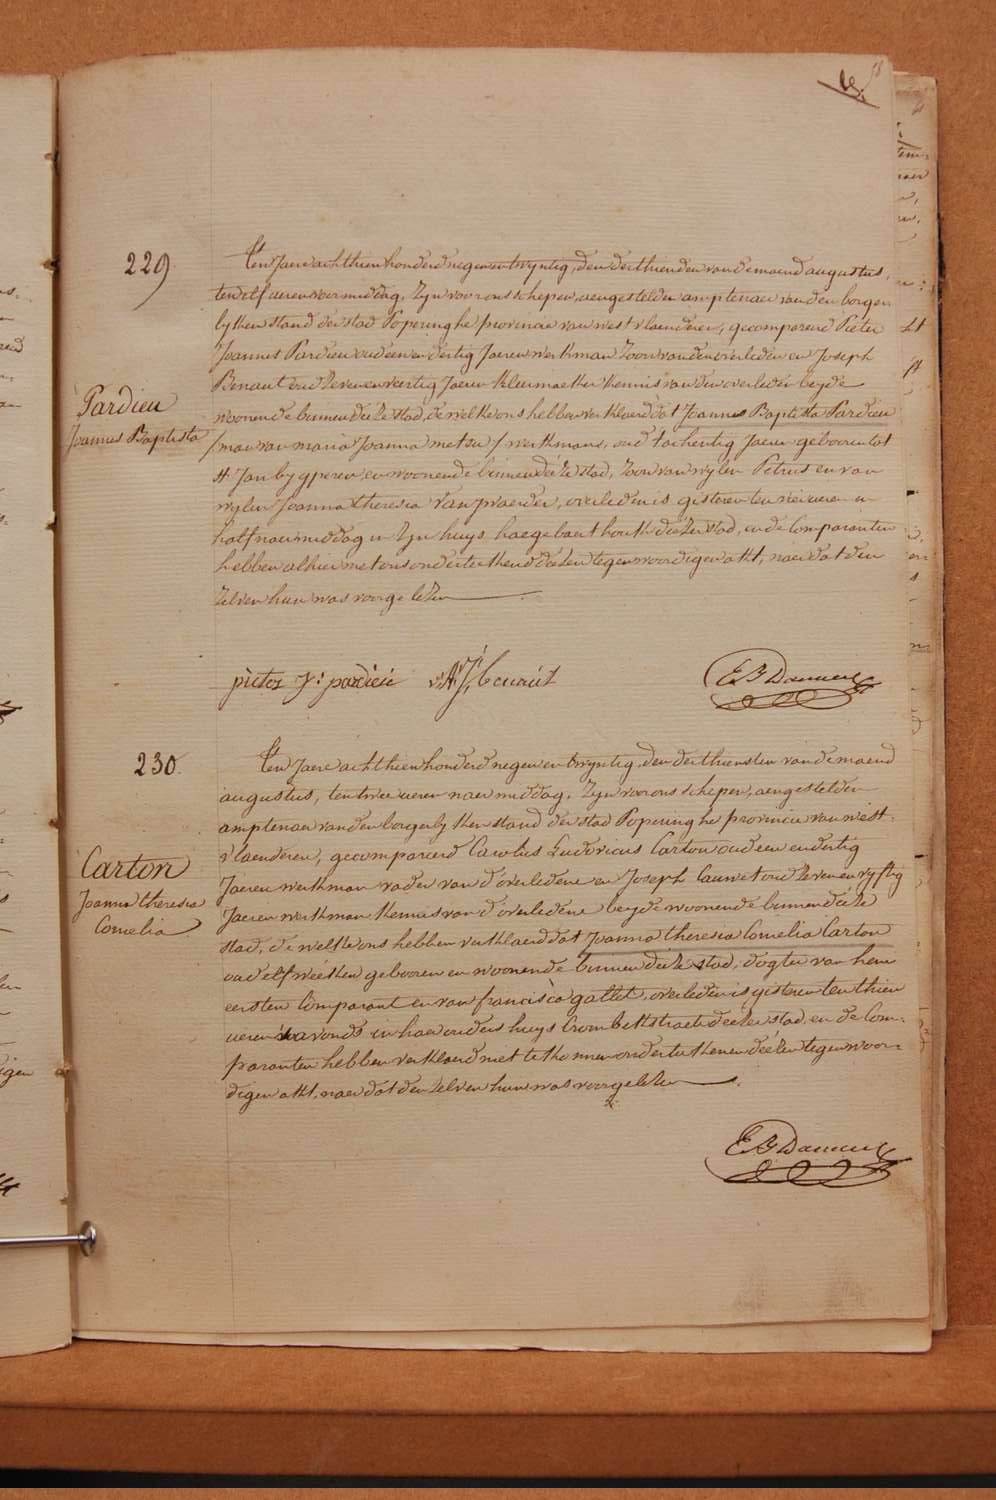 58
229
Ten Jaere achthien honderd negen en twyntig, den derthienden van de maend augustus,
ten elf ueren voormiddag, Zyn voor ons schepen, aengestelden amptenaer van den borger-
lyken stand der stad Poperinghe provincie van west vlaenderen, gecompareerd Pieter
Joannes Pardieu oud een en dertig Jaeren werkman Zoon van den overleden en Joseph
Benaut oud Zeven en veertig Jaeren kleermaeker kennis van den overleden beyde
woonende binnen deéze stad, de welke ons hebben verklaerd dat Joannes Baptista Pardieu
/man van maria Joanna metsu/ werkmans, oud tachentig Jaeren gebooren tot
St Jan by yperen, en woonende binnen deéze stad, Zoon van wylen Petrus en van
wylen Joanna theresia Van praerden, overleden is gisteren ten vier ueren en
half naermiddag in Zyn huys haegebaert houk deézer stad, en de Comparanten
hebben alhier met ons onderteekend deézen tegenwoordigen akt, naer dat den
Zelven hun was voorgelezen
Pardieu
Joannes Baptista
pieter J: pardieu
E. B Damien
230
Ten Jaere achthien honderd negen en twyntig, den derthiensten van de maend
augustus, ten twee ueren naermiddag, Zyn voor ons schepen, aengestelden
amptenaer van den borgerlyken stand der stad Poperinghe provincie van west-
vlaenderen, gecompareerd Carolus Ludovicus Carton oud een en dertig
Jaeren werkman vader van d'overledene en Joseph Cauwet oud Zeven en vyftig
Jaeren werkman kennis van d'overledene beyde woonende binnen deéze
stad, de welke ons hebben verklaerd dat Joanna theresia Cornelia Carton
oud elf weéken gebooren en woonende binnen deéze stad, dogter van hem
eersten Comparant en van francisca gallet, overleden is gisteren ten thien
ueren 's avonds in haer ouders huys Crombekstraete deézer stad, en de Com-
paranten hebben verklaerd niet te konnen onderteekenen deézen tegenwoor-
digen akt, naer dat den Zelven hun was voorgelezen
Carton
Joanna theresia
Cornelia
E. B Damien